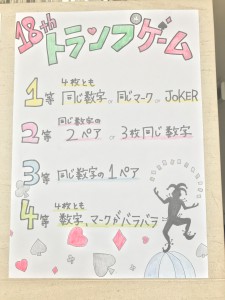 18th
トランプゲーム
4枚とも
1等 同じ数字 or 同じマーク or JOKER
同じ数字の
2等 2ペア or 3枚同じ数字
3等 同じ数字の1ペア
4枚とも
4等 数字、マークがバラバラ